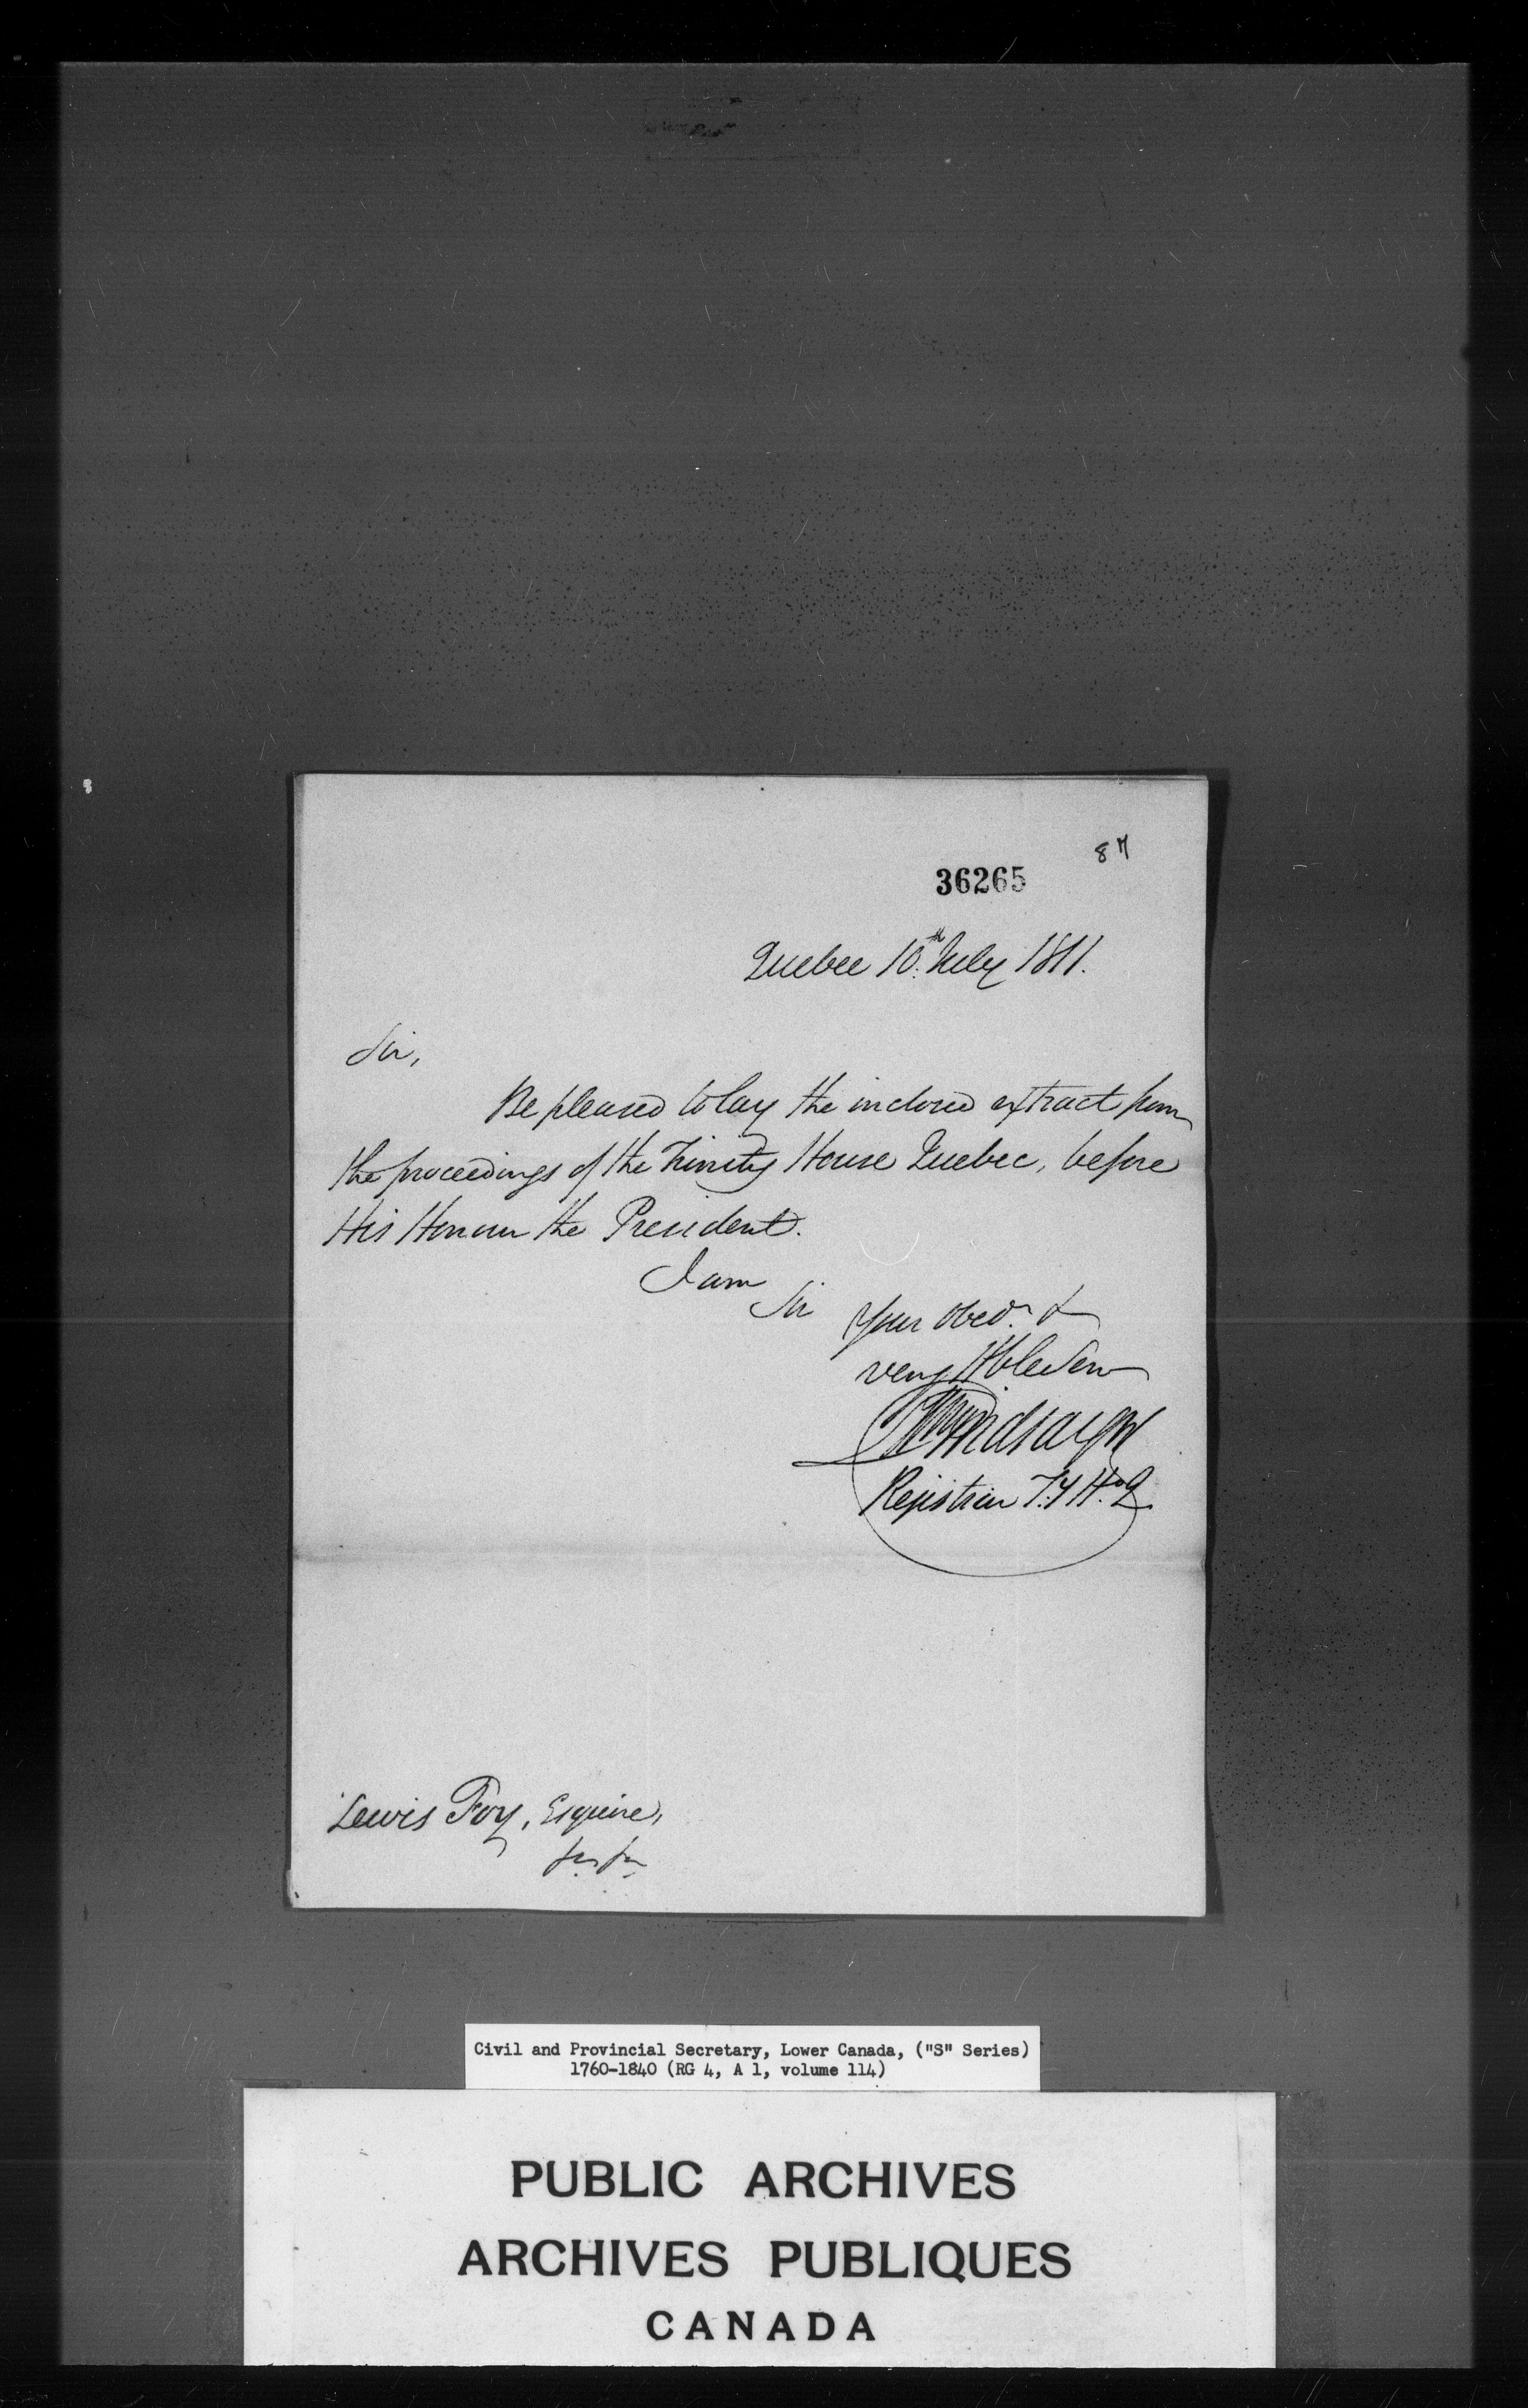 87
36265
Quebec 10th July 1811.
Sir,
Be pleased to lay the inclosed extract from
the proceedings of the Trinity House Quebec, before
His Honour the President.
I am
Sir
Your obedt &
very Hble Serv
Wm Lindsay
Registrar T.y H.o Q
Lewis Foy, Esquire,
Civil and Provincial Secretary, Lower Canada, ("S" Series)
1760-1840 (RG 4, A 1, volume 114)
PUBLIC ARCHIVES
ARCHIVES PUBLIQUES
CANADA